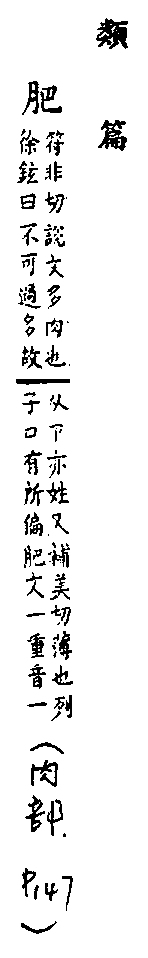 類篇
肥 符非切說文多肉也
徐鉉曰不可過多故
从卪亦姓又補美切薄也列
子口有所偏肥文一重音一
(肉部. P.147)